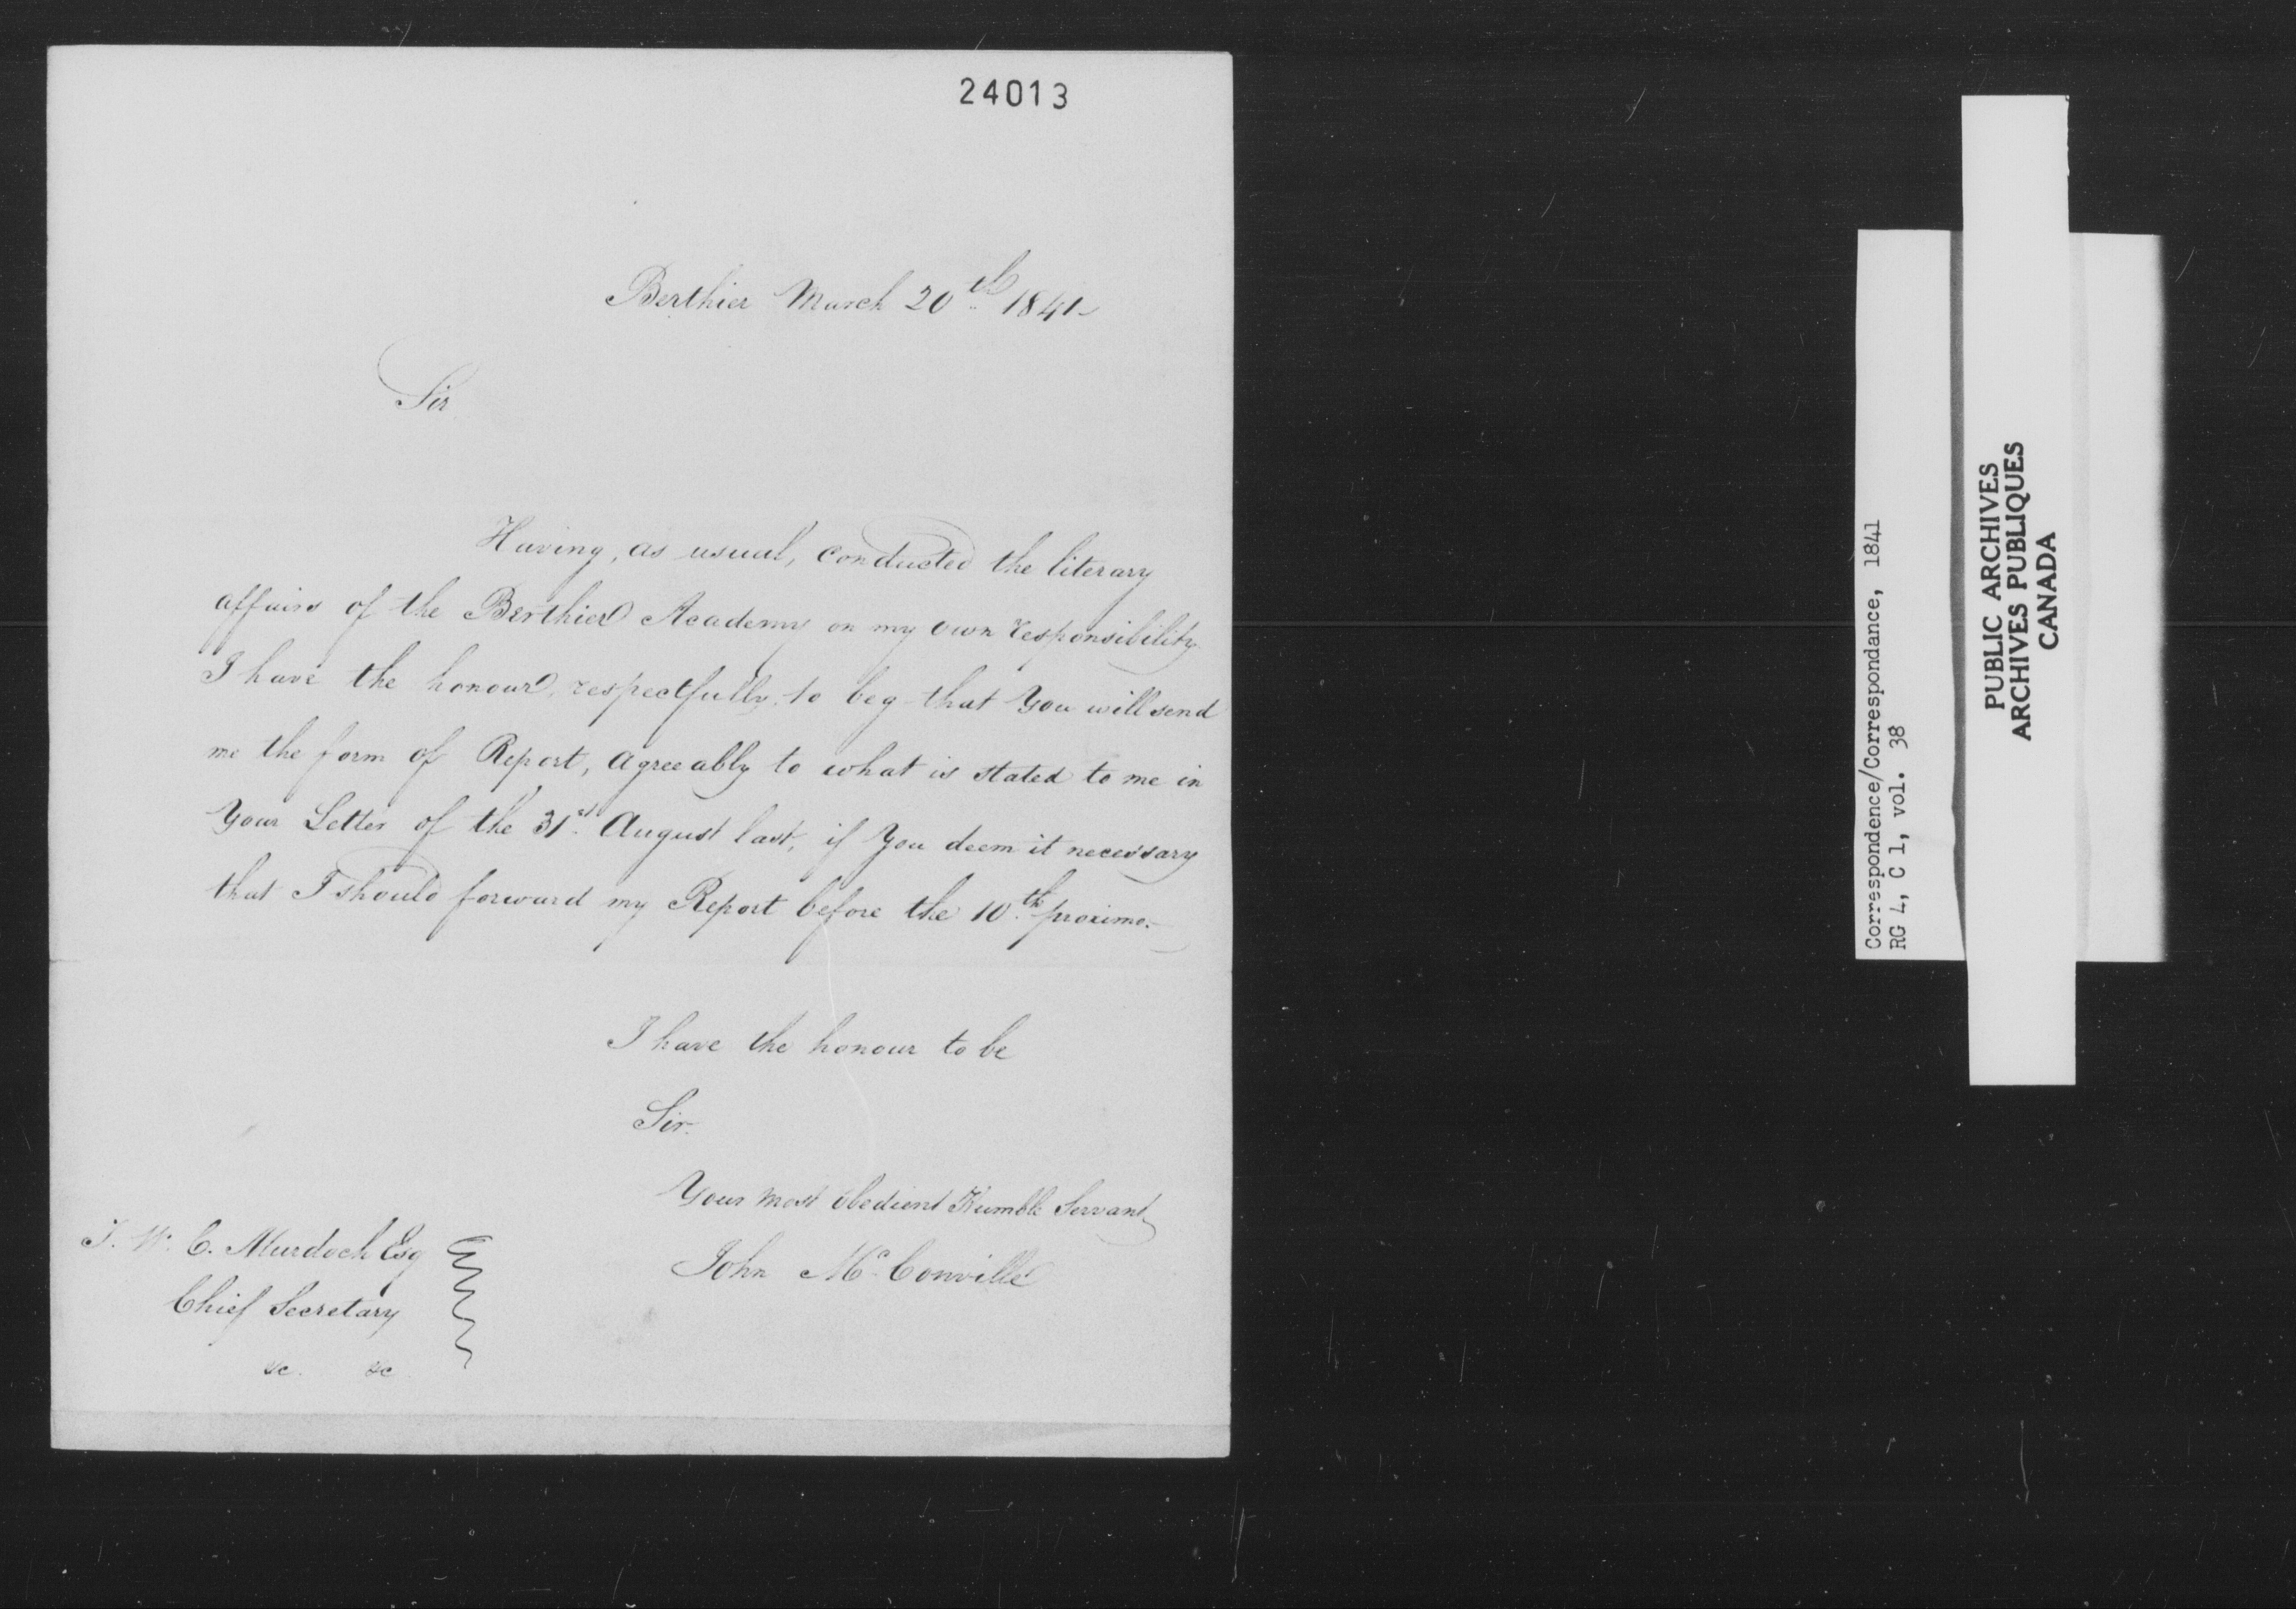 24013
Berthier March 20th 1841
Sir
Having, as usual, conducted the literary
affairs of the Berthier Academy on my own responsibility
I have the honour, respectfully, to beg that You will send
me the form of Report, agreeably to what is stated to me in
Your Letter of the 31st August last, if You deem it necessary
that I should forward my Report before the 10th proximo.
I have the honour to be
Sir.
Your most obedient Humble Servant
John Mc Conville
T. W. C. Murdoch Esq
Chief Secretary
&c. &c
Correspondence/Correspondance, 1841
RG 4, C 1, vol. 38
PUBLIC ARCHIVES
ARCHIVES PUBLIQUES
CANADA